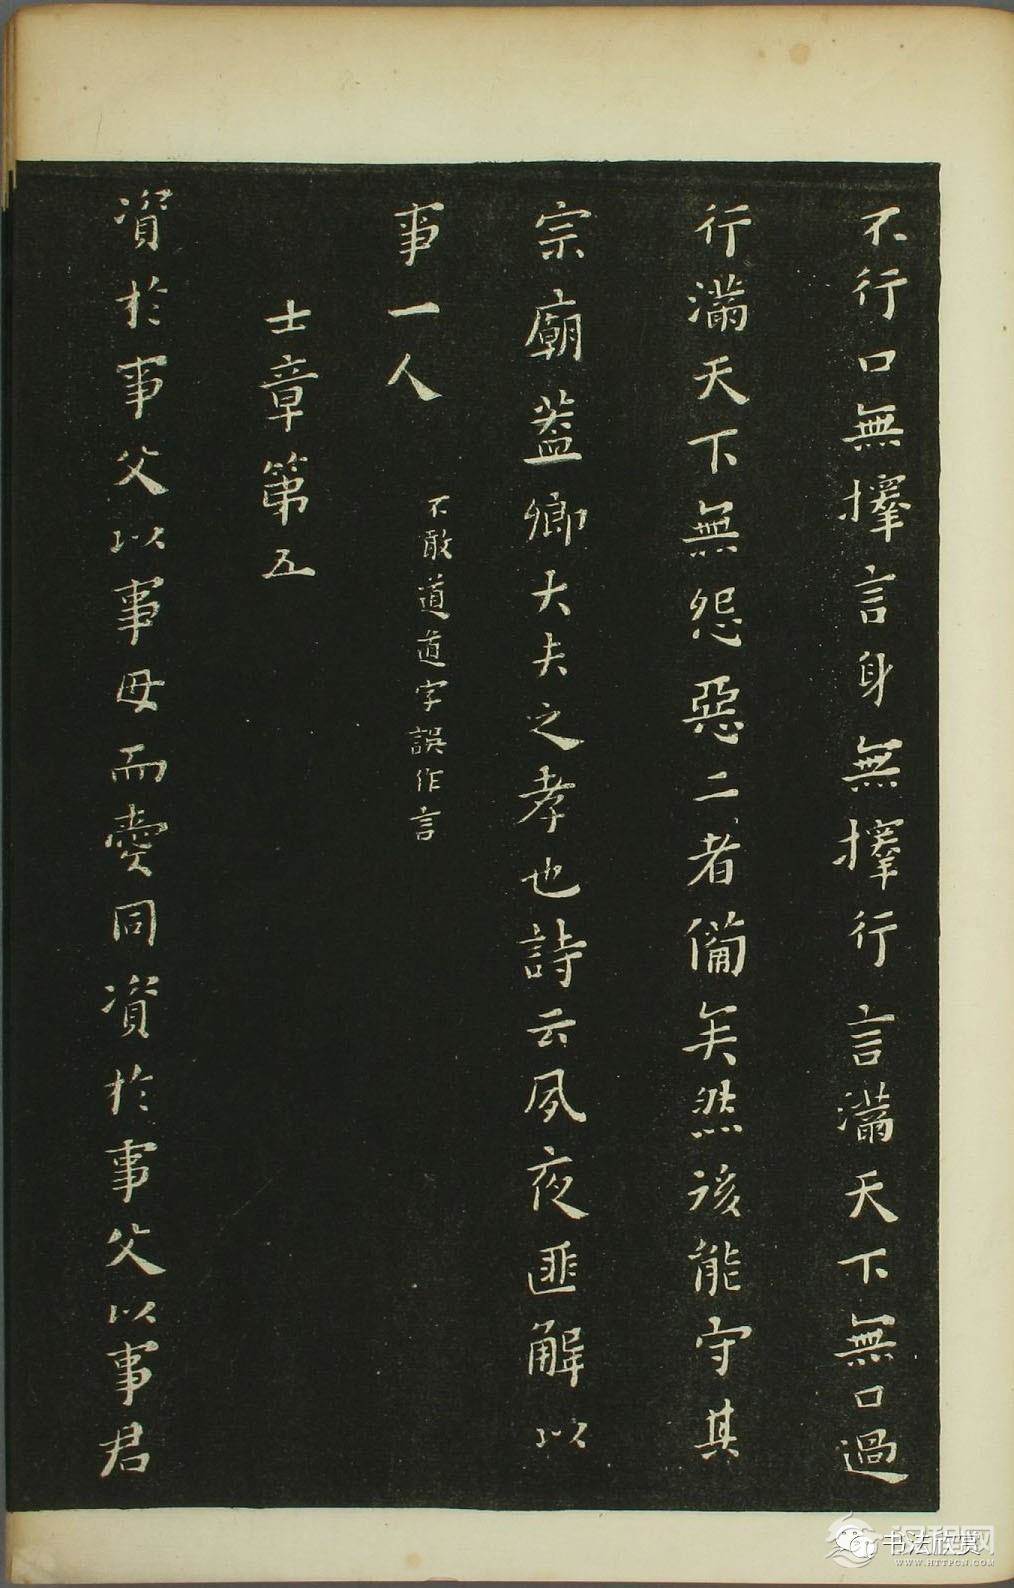 不行口無擇言身無擇行言滿天下無口過
行滿天下無怨惡二者備矣然後能守其
宗廟蓋卿大夫之孝也詩云夙夜匪解以
事一人
不敢道道字誤作言
士章第五
資於事父以事母而愛同資於事父以事君
书法欣赏
汉程网
WWW.HTTPCN.COM